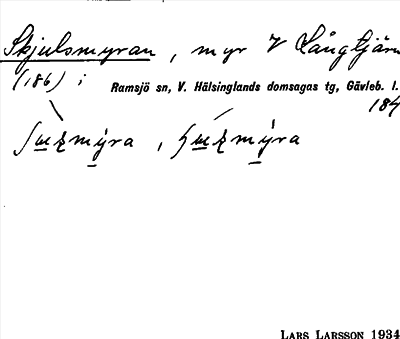 Skjulsmyran, myr V Långtjärn
(186) ;
Ramsjö sn, V. Hälsinglands domsagas tg, Gävleb. l.
184
LARS LARSSON 1934